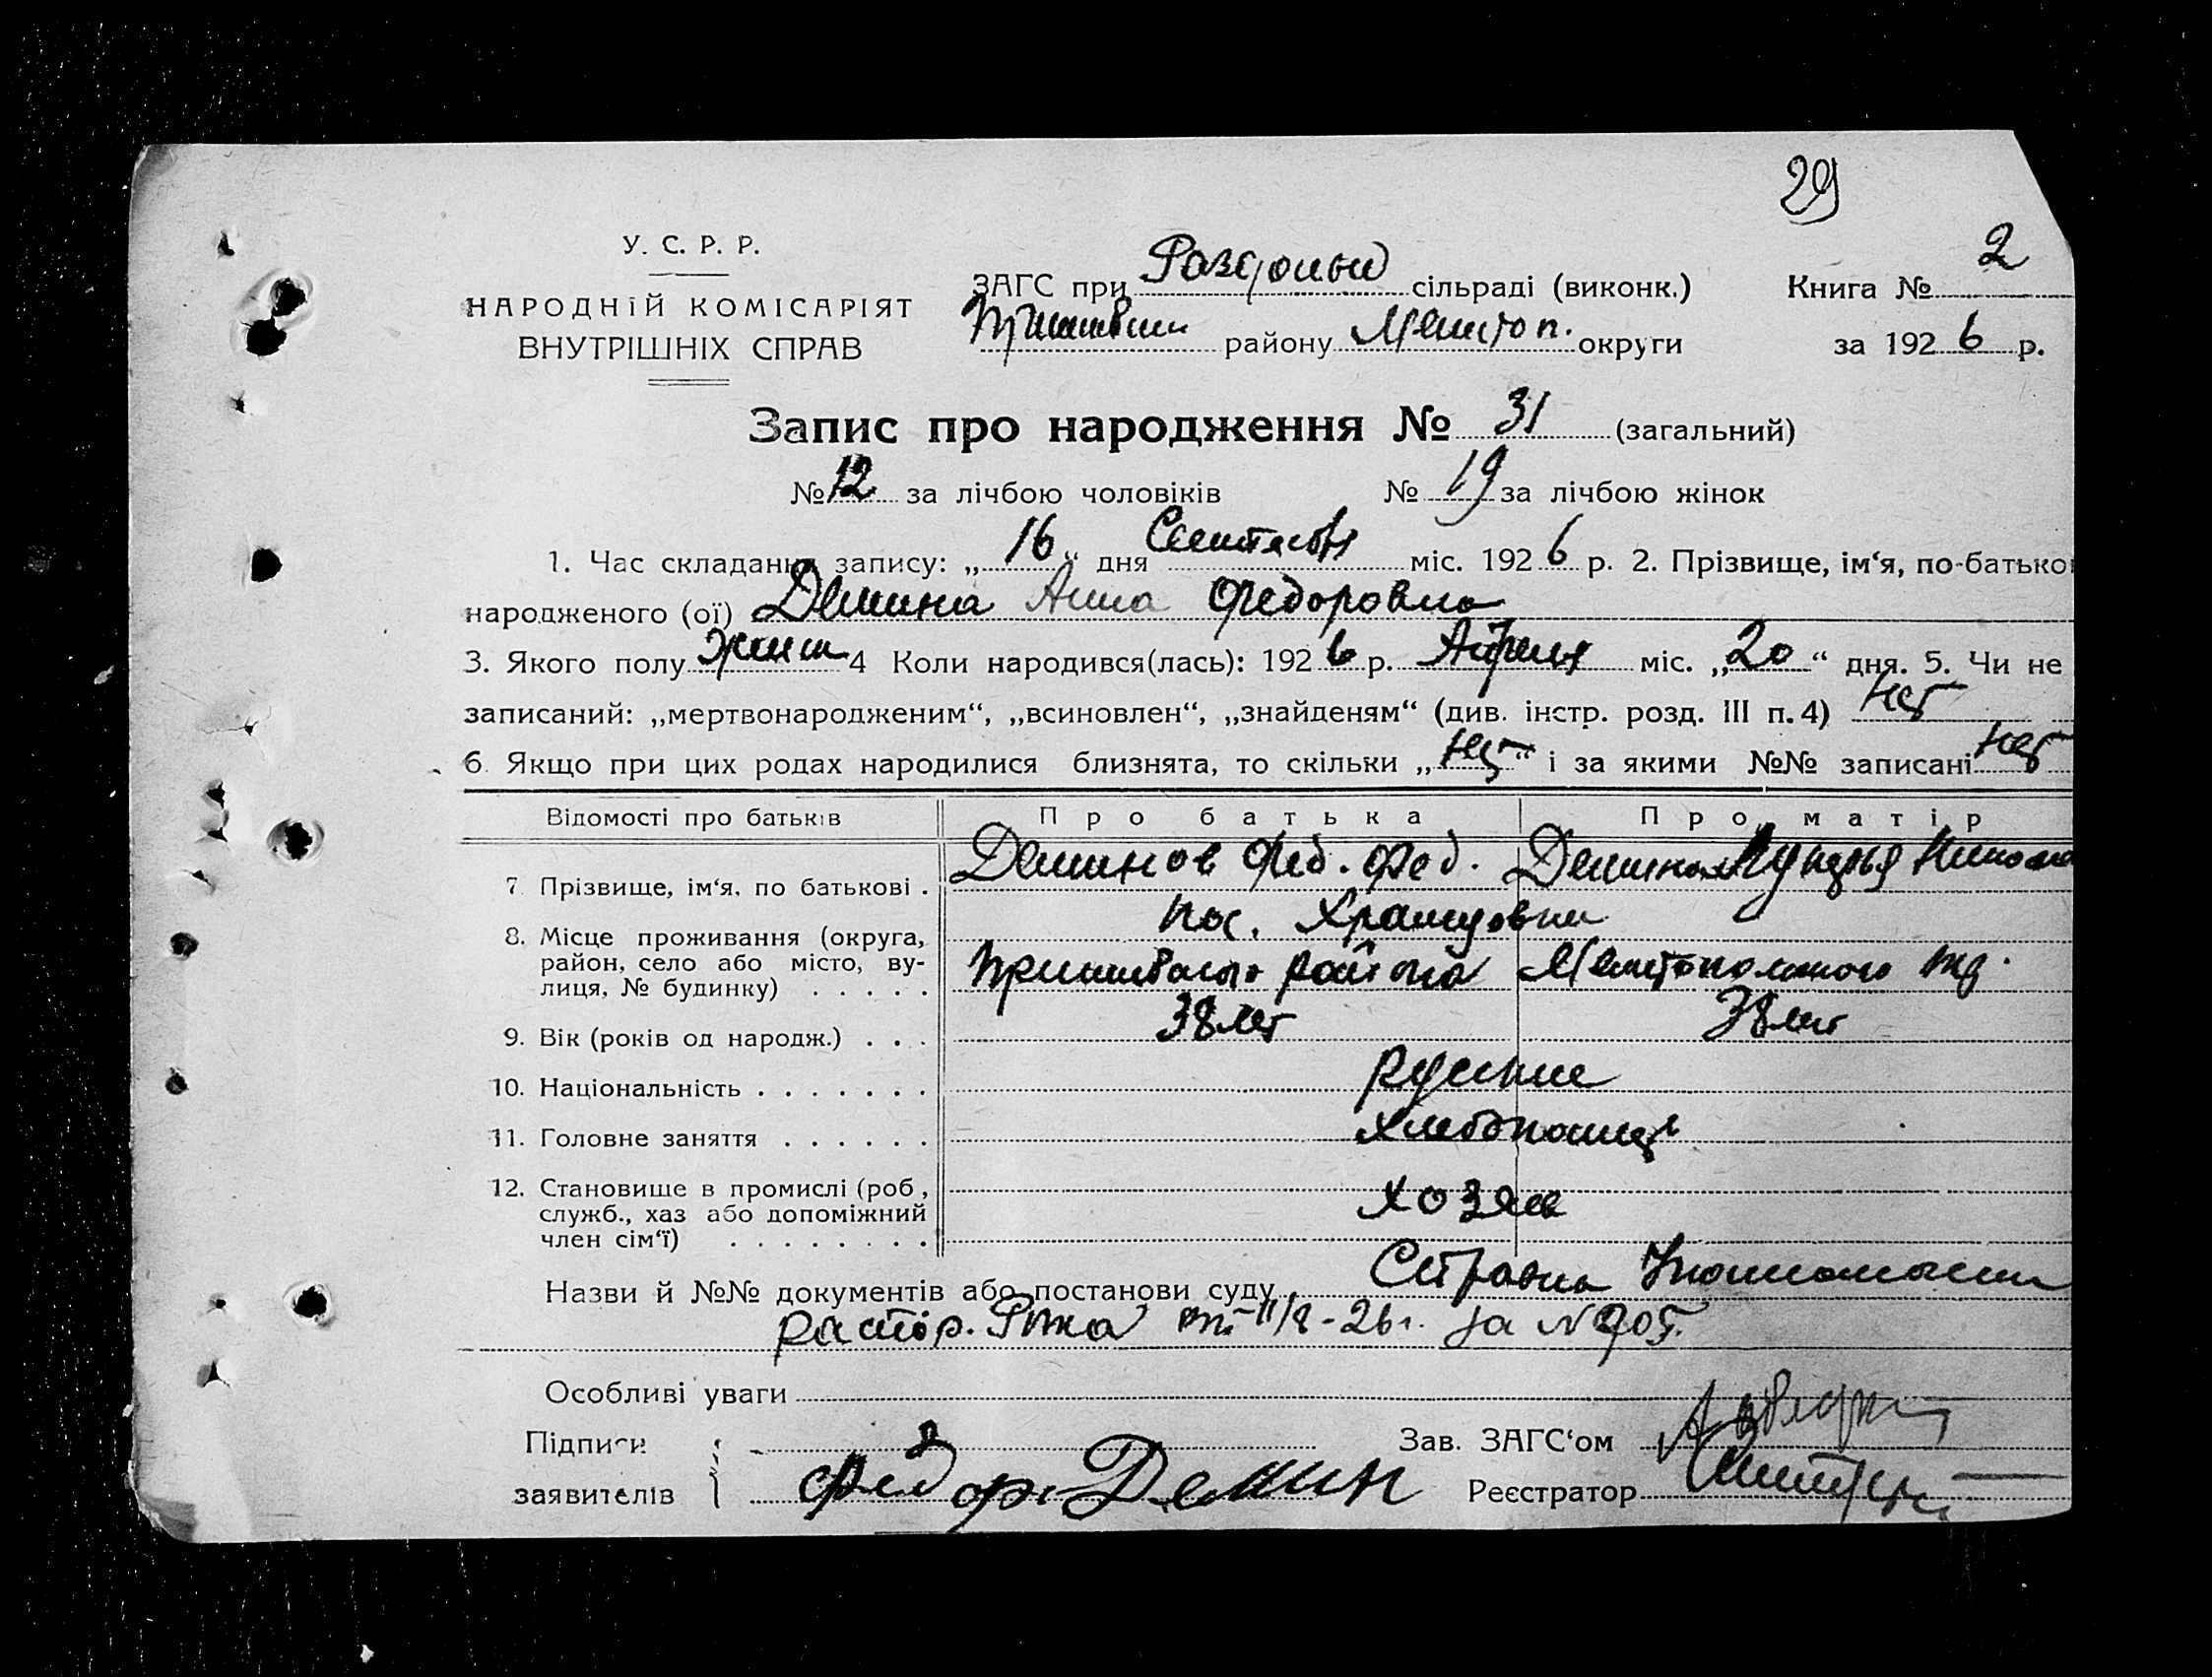 29
У. С. Р. Р.
НАРОДНІЙ КОМІСАРІЯТ
ВНУТРІШНІХ СПРАВ
ЗАГС при сільраді (виконк.)
району Мелитоп. округи
Книга № 2
за 1926 р.
Запис про народження № 31 (загальний)
№ 12 за лічбою чоловіків № 19 за лічбою жінок
1. Час складання запису: „16“ дня Сентября міс. 1926 р. 2. Прізвище, ім‘я, по-батько
народженого (ої) Демина Анна Федоровна
3. Якого полу женш 4 Коли народився(лась): 1926 р. Апреля міс. „20“ дня. 5. Чи не
записаний: „мертвонародженим“, „всиновлен“, „знайденям“ (див. інстр. розд. III п. 4) нет
6. Якщо при цих родах народилися близнята, то скільки „нет“ і за якими №№ записані нет
Відомості про батьків Про батька Про матір
7. Прізвище, ім‘я, по батькові . Деминов Фед. Фед. Демина
8. Місце проживання (округа, район, село або місто, вулиця, № будинку) . . . . . пос.
района Мелитопольского
9. Вік (років од народж.) . . . 38 лет 38 лет
10. Національність . . . . . . . Руские
11. Головне заняття . . . . . . Хлебопашец
12. Становище в промислі (роб, служб., хаз або допоміжний член сім‘ї) . . . . . . . . хозяев
Назви й №№ документів або постанови суду Справка
распор. Рика от 11/8-26 г. за №
Особливі уваги
Підписи
заявителів Федор Демин
Зав. ЗАГС‘ом
Реєстратор